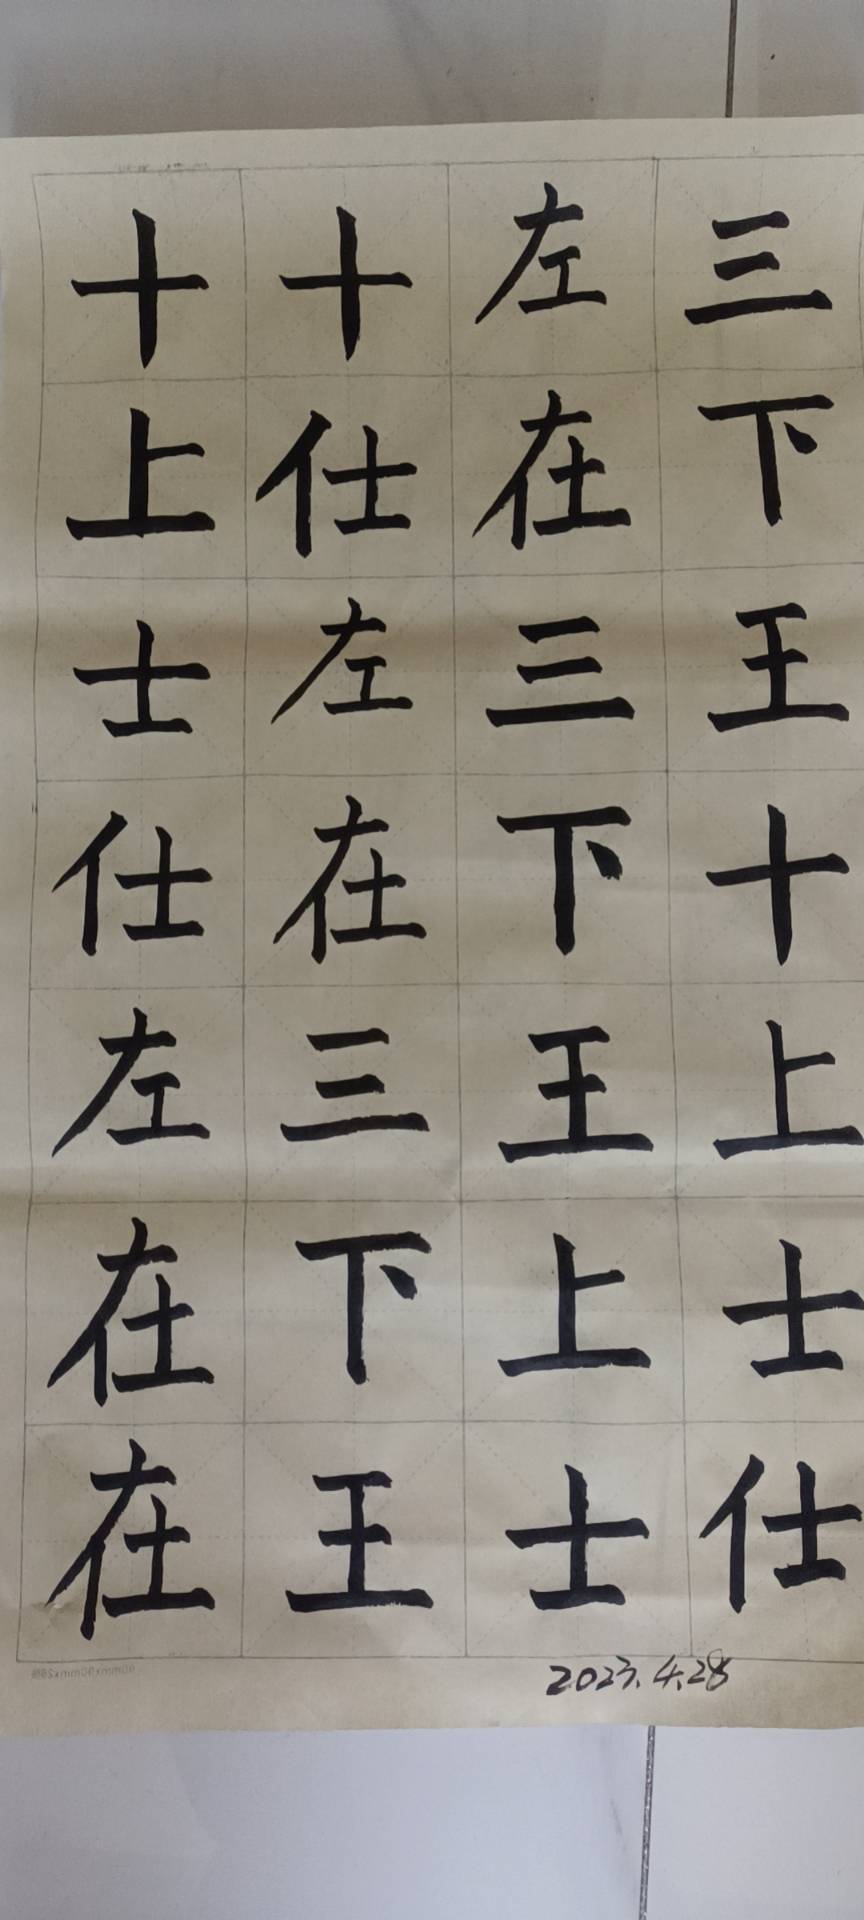 三下王十上士仕
左在三下王上士
十仕左在三下王
十上士仕左在在
2023.4.28